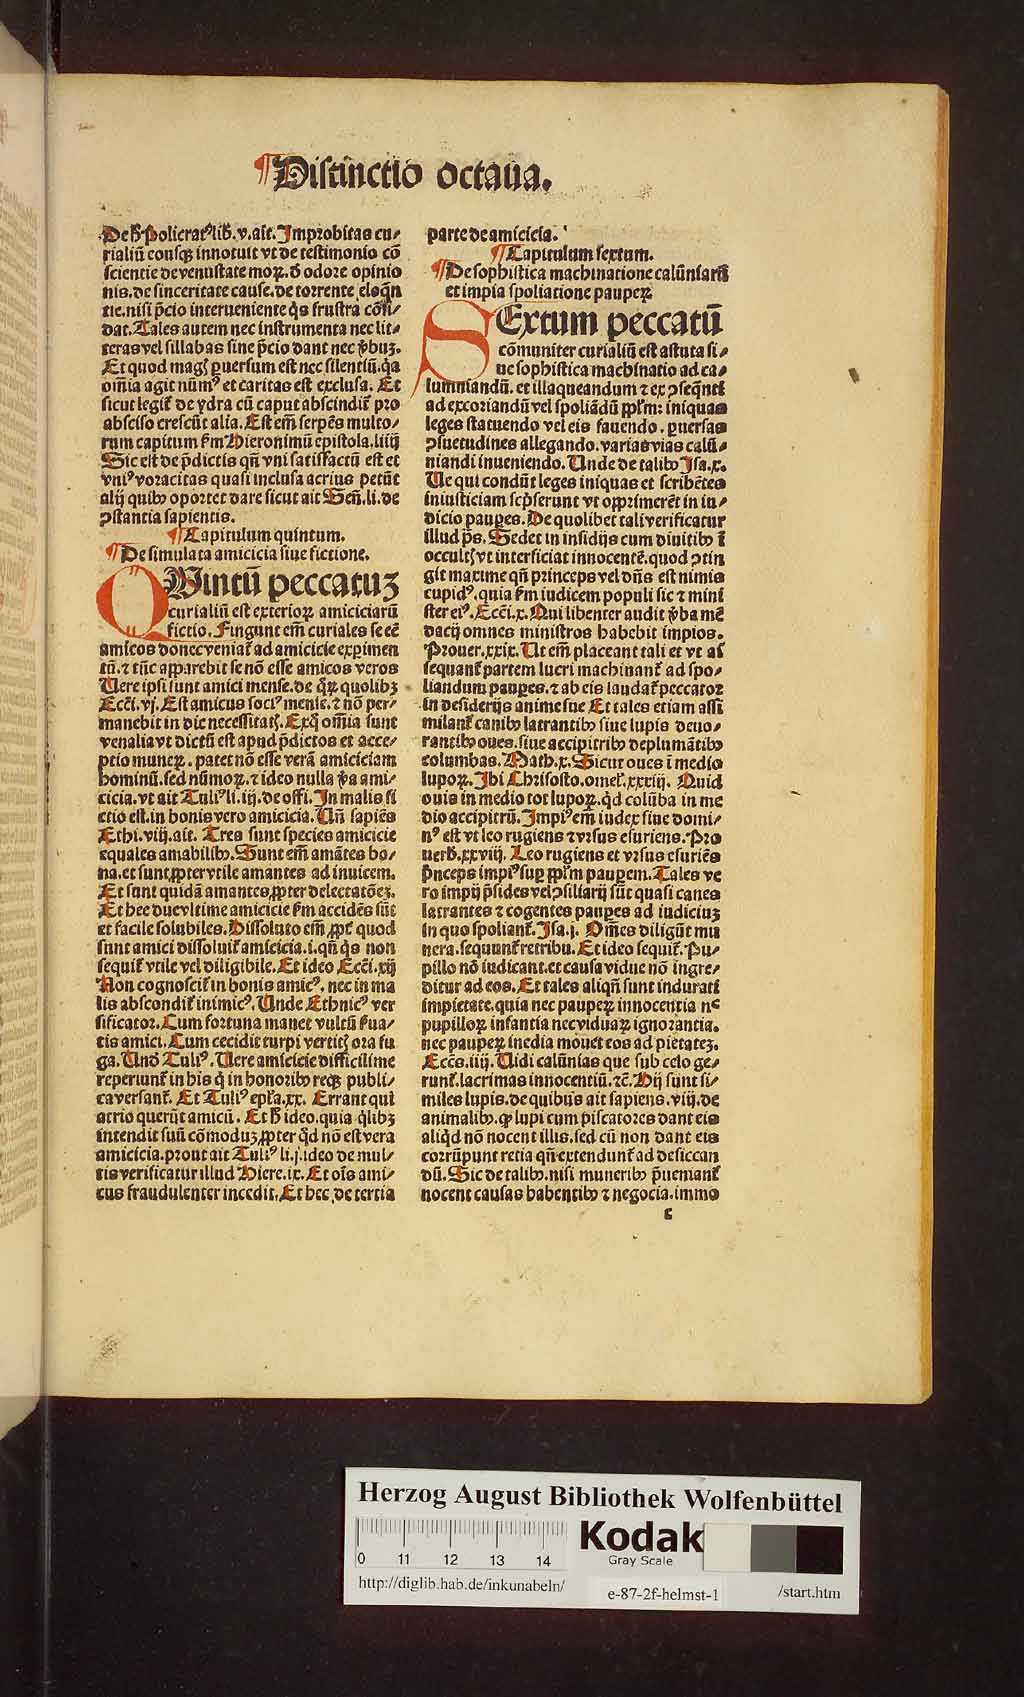 ¶Distinctio octaua.
De hͦ Policratꝰ lib. v. ait. Improbitas cu⸗
rialiū eousqꝫ innotuit vt de testimonio cō
scientie de venustate moꝝ. d̄ odore opinio
nis. de sinceritate cause. de torrente eloq̄n
tie. nisi p̄cio interueniente q̇s frustra cōfi⸗
dat. Tales autem nec instrumenta nec lit⸗
teras vel sillabas sine p̄cio dant nec v̄buꝫ.
Et quod magꝭ ꝑuersum est nec silentiū. q̇a
om̄ia agit nūmꝰ et caritas est exclusa. Et
sicut legit̄ de ydra cū caput abscindit̄ pro
absciso crescūt alia. Est em̄ serpēs multo⸗
rum capitum ẜm Hieronimū epistola. liiij
Sic est de p̄dictis qn̄ vni satisfactū est et
vniꝰ voracitas quasi inclusa acrius petūt
alij quibꝰ oportet dare sicut ait Sen̄. li. de
ꝯstantia sapientis.
¶Capitulum quintum.
¶De simulata amicicia siue fictione.
QWintū peccatuꝫ
curialiū est exterioꝝ amiciciarū
fictio. Fingunt em̄ curiales se eē
amicos donec veniat̄ ad amicicie exꝑimen
tū. ⁊ tūc apparebit se nō esse amicos veros
Uere ipsi sunt amici mense. de q̇ꝝ quolibꝫ
Ecc̄i. vj. Est amicus sociꝰ mense. ⁊ nō per⸗
manebit in die necessitatꝭ. Exq̇ om̄ia sunt
venalia vt dictū est apud p̄dictos et acce⸗
ptio muneꝝ. patet nō esse verā amiciciam
hominū. sed nūmoꝝ. ⁊ ideo nulla v̄a ami⸗
cicia. vt ait Tuliꝰ li. iij. de offi. In malis fi
ctio est. in bonis vero amicicia. Un̄ sapiēs
Ethi. viij. ait. Tres sunt species amicicie
equales amabilibꝰ. Sunt em̄ amātes bo⸗
na. et sunt ꝓpter vtile amantes ad inuicem.
Et sunt quidā amantes ꝓpter delectatōeꝫ.
Et hee due vltime amicicie ẜm accidēs sūt
et facile solubiles. Dissoluto em̄ ꝓpt̄ quod
sunt amici dissoluit̄ amicicia. i. qn̄ q̇s non
sequit̄ vtile vel diligibile. Et ideo Ecc̄i. xij
Non cognoscit̄ in bonis amicꝰ. nec in ma
lis abscondit̄ inimicꝰ. Unde Ethnicꝰ ver
sificator. Cum fortuna manet vultū ẜua⸗
tis amici. Cum cecidit turpi vertitꝭ ora fu
ga. Unḋ Tuliꝰ. Uere amicicie difficilime
reperiunt̄ in his q̇ in honoribꝰ reqꝫ publi⸗
ca versant̄. Et Tuliꝰ ep̄la. xx. Errant qui
atrio querūt amicū. Et hͦ ideo. quia q̇libꝫ
intendit suū cōmoduꝫ ꝓpter q̇d nō est vera
amicicia. prout ait Tuliꝰ li. j. ideo de mul⸗
tis verificatur illud Hiere. ix. Et oīs ami⸗
cus fraudulenter incedit. Et hec de tertia
parte de amicicia.
¶Capitulum sextum.
¶De sophistica machinatione calūniarū
et impia spoliatione pauperꝝ
SExtum peccatū
cōmuniter curialiū est astuta si⸗
ue sophistica machinatio ad ca⸗
lumniandū. et illaqueandum ⁊ ex ꝯseq̄nti
ad excoriandū vel spoliādū ppl̄m: iniquas
leges statuendo vel eis fauendo. ꝑuersas
ꝯsuetudines allegando. varias vias calū⸗
niandi inueniendo. Unde de talibꝰ Isa. x.
Ue qui condūt leges iniquas et scribētes
iniusticiam scp̄serunt vt opp̄rimerēt in iu⸗
dicio pauꝑes. De quolibet tali verificatur
illud ps̄. Sedet in insidijs cum diuitibꝰ ī
occultꝭ vt interficiat innocentē. quod ꝯtin
git maxime qn̄ princeps vel dn̄s est nimis
cupidꝰ. quia ẜm iudicem populi sic ⁊ mini
ster eiꝰ. Ecc̄i. x. Qui libenter audit v̄ba mē
dacij omnes ministros habebit impios.
Prouer. xxix. Ut em̄ placeant tali et vt as̄
sequant̄ partem lucri machinant̄ ad spo⸗
liandum pauꝑes. ⁊ ab eis laudat̄ peccator
in desiderijs anime sue Et tales etiam assi
milant̄ canibꝰ latrantibꝰ siue lupis deuo⸗
rantibꝰ oues. siue accipitribꝰ deplumātibꝰ
columbas. Math. x. Sicut oues ī medio
lupoꝝ. Ibi Chrisosto. omel̄. xxxiij. Quid
ouis in medio tot lupoꝝ. q̇d colūba in me
dio accipitrū. Impiꝰ em̄ iudex siue domi⸗
nꝰ est vt leo rugiens ⁊ vrsus esuriens. Pro
uerb̄. xxviij. Leo rugiens et vrsus esuriēs
p̄nceps impiꝰ suꝑ ppl̄m pauꝑem. Tales ve
ro impij p̄sides vel ꝯsiliarij sūt quasi canes
latrantes ⁊ cogentes pauꝑes ad iudiciuꝫ
in quo spoliant̄. Isa. j. Om̄es diligūt mu
nera. sequunt̄ retribu. Et ideo sequit̄. Pu⸗
pillo nō iudicant. et causa vidue nō ingre⸗
ditur ad eos. Et tales aliqn̄ sunt indurati
impietate. quia nec pauperꝝ innocentia nᶜ
pupilloꝝ infantia nec viduaꝝ ignorantia.
nec pauperꝝ inedia mouet eos ad pietateꝫ.
Ecc̄s. iiij. Uidi calūnias que sub celo ge⸗
runt̄. lacrimas innocentiū. ⁊c̄. Hij sunt si⸗
miles lupis. de quibus ait sapiens. viij. de
animalibꝰ. ꝙ lupi cum piscatores dant eis
aliq̇d nō nocent illis. sed cū non dant eis
corrūpunt retia qn̄ extendunt̄ ad desiccan
dū. Sic de talibꝰ. nisi muneribꝰ p̄ueniant̄
nocent causas habentibꝰ ⁊ negocia. immo
c
Herzog August Bibliothek Wolfenbüttel
0 11 12 13 14
Kodak
Gray Scale
http://diglib.hab.de/inkunabeln/ e-87-2f-helmst-1 /start.htm